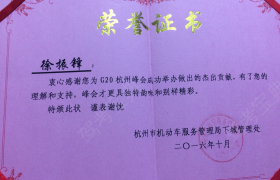 荣誉证书
徐振锋：
衷心感谢您为G20杭州峰会成功举办做出的杰出贡献，有了您的
理解和支持，峰会才更具独特韵味和别样精彩。
特颁此状　谨表谢忱
杭州市机动车服务管理局下城管理处
二〇一六年十月